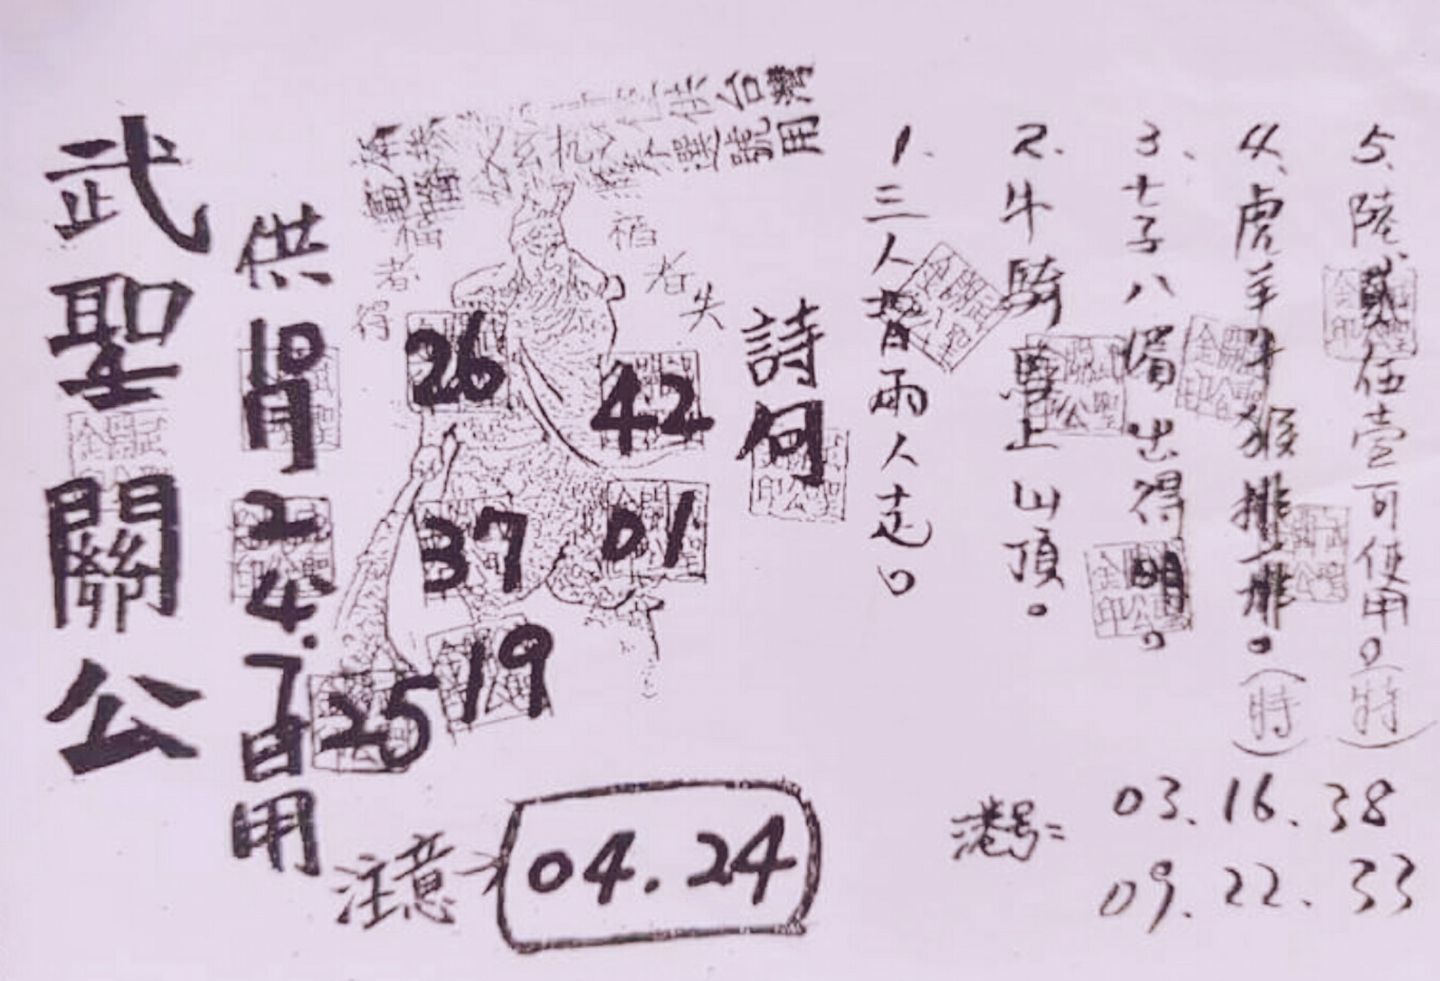 武聖關公
供10月24.7日用
台灣
選號用
福者得
禍者失
26
42
37
01
19
25
注意→ 04.24
詩句
1.三人督兩人走。
2.牛騎馬上山頂。
3.七子八湄出得明。
4.虎羊牛猴排一排。(特)
5.陸貳伍壹可使用。(特)
港号= 03.16.38
09.22.33